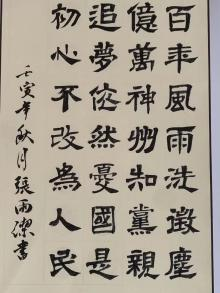 百年風雨洗徵塵
億萬神州知黨親
追夢依然憂國是
初心不改為人民
壬寅年秋月張雨潔書